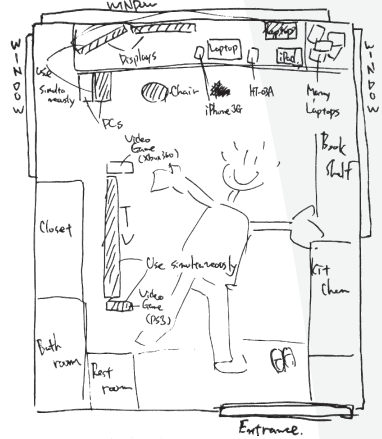 WINDOW
WINDOW
WINDOW
Displays
Laptop
Laptop
iPad
Use
simultane
ously
PCs
Chair
iPhone3G
HT-03A
Many
Laptops
Video
Game
(Xbox360)
Book
Shelf
Closet
Use simultaneously
Video
Game
(PS3)
Kit
chen
Bath
room
Rest
room
Entrance.